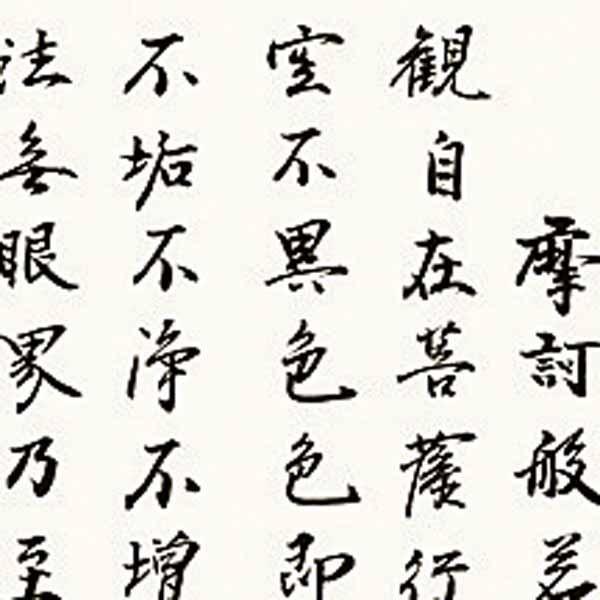 摩訶般若
観自在菩薩行
空不異色色即
不垢不浄不増
法無眼界乃至